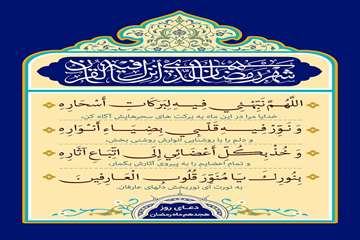 شهر رمضان الذی أنزل فیه القرآن
اللَّهُمَّ نَبِّهْنِی فِیهِ لِبَرَکَاتِ أَسْحَارِهِ
خدایا مرا در این ماه به برکت های سحرهایش آگاه کن،
وَ نَوِّرْ فِیهِ قَلْبِی بِضِیَاءِ أَنْوَارِهِ
و دلم را با روشنایی انوارش روشنی بخش،
وَ خُذْ بِکُلِّ أَعْضَائِی إِلَى اتِّبَاعِ آثَارِهِ
و تمام اعضایم را به پیروی آثارش بگمار،
بِنُورِکَ یَا مُنَوِّرَ قُلُوبِ الْعَارِفِینَ
به نورت ای نوربخش دلهای عارفان.
دعـای روز
هجدهم ماه رمضان